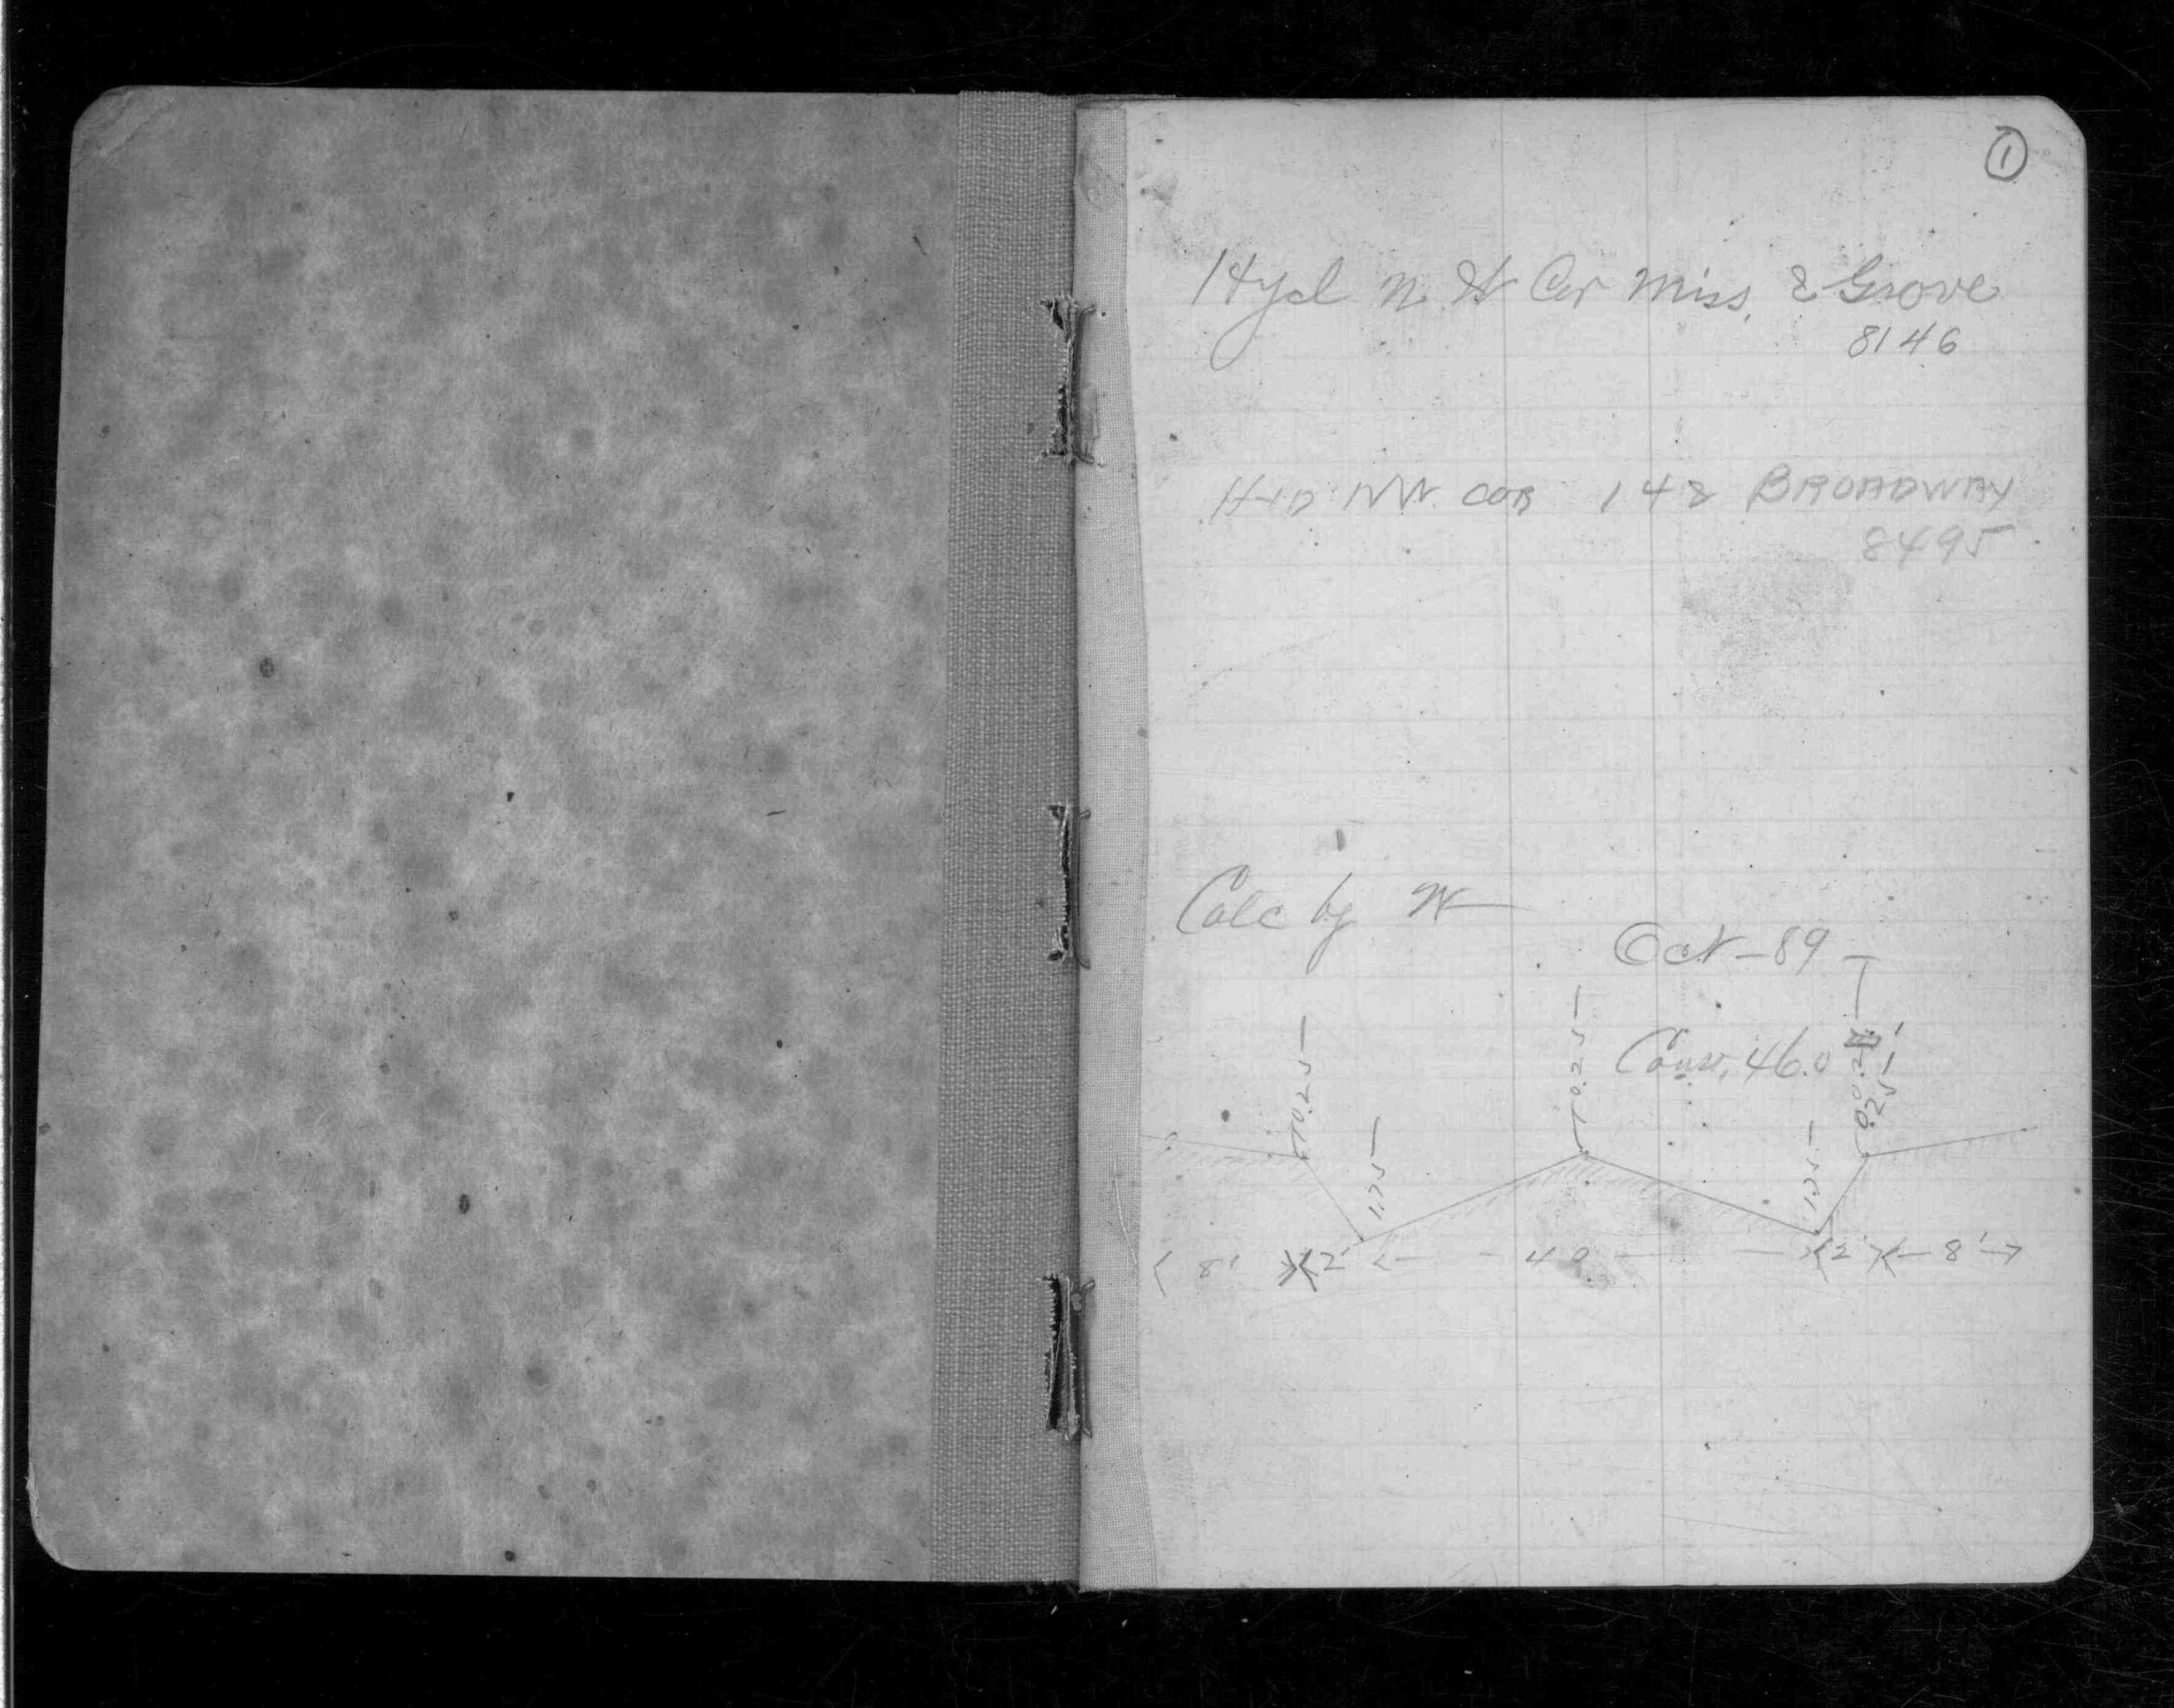 1
Hyd N. W Cor Miss. & Grove
8146
HYD NW COR 14 & BROADWAY
8495
Calc by W
Oct - 89
Conv. 46.0
0.25 0.25 0.25
1.75 1.75
8' 2' 40 2' 8'